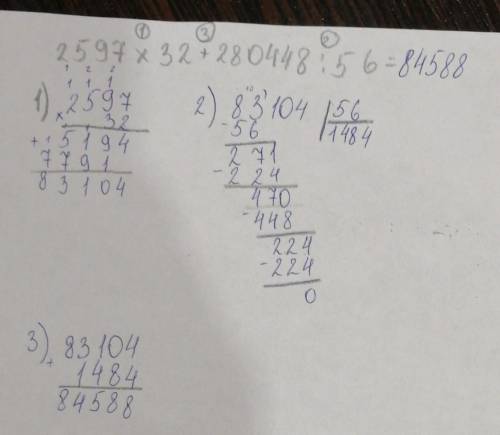 ① ③ ②
2597 × 32 + 280448 : 56 = 84588
1)
1 2 2
1 1 1
2597
× 32
+ 5194
7791
83104
2) 83104 | 56
- 56 1484
271
- 224
470
- 448
224
- 224
0
3) 83104
+ 1484
84588